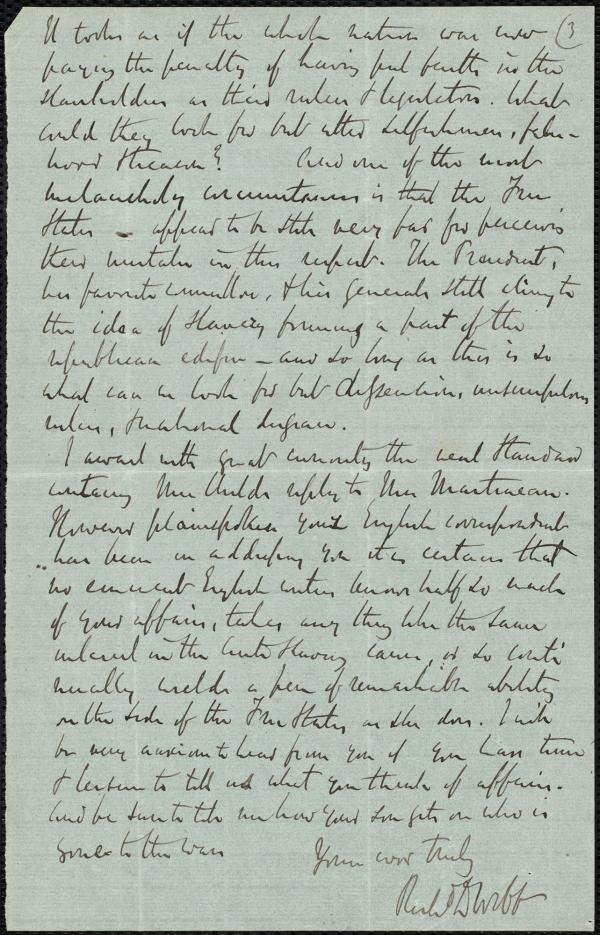 It looks as if the whole nation was now (3
paying the penalty of having put faith in the
slaveholders as their rulers & legislators. What
could they look for but utter selfishness, false-
hood & treason? And one of the most
melancholy circumstances is that the Free
States – appear to be still very far from perceiving
their mistake in this respect. The President,
his favorite councillors, & his generals still cling to
the idea of Slavery forming a part of the
republican edifice – and so long as this is so
what can we look for but dissension, unscrupulous
rulers, & national disgrace.
I await with great curiosity the next Standard
containing Mrs Childs reply to Mrs Martineau.
However plainspoken your English correspondent
has been in addressing you it is certain that
no eminent English writer knows half so much
of your affairs, takes any thing like the same
interest in the Anti Slavery cause, or so conti
nually wields a pen of remarkable ability
on the side of the Free States as she does. I will
be very anxious to hear from you if you have time
& leisure to tell us what you think of affairs.
And be sure to tell me how your son gets on who is
gone to the wars
Yours ever truly
Richd D Webb